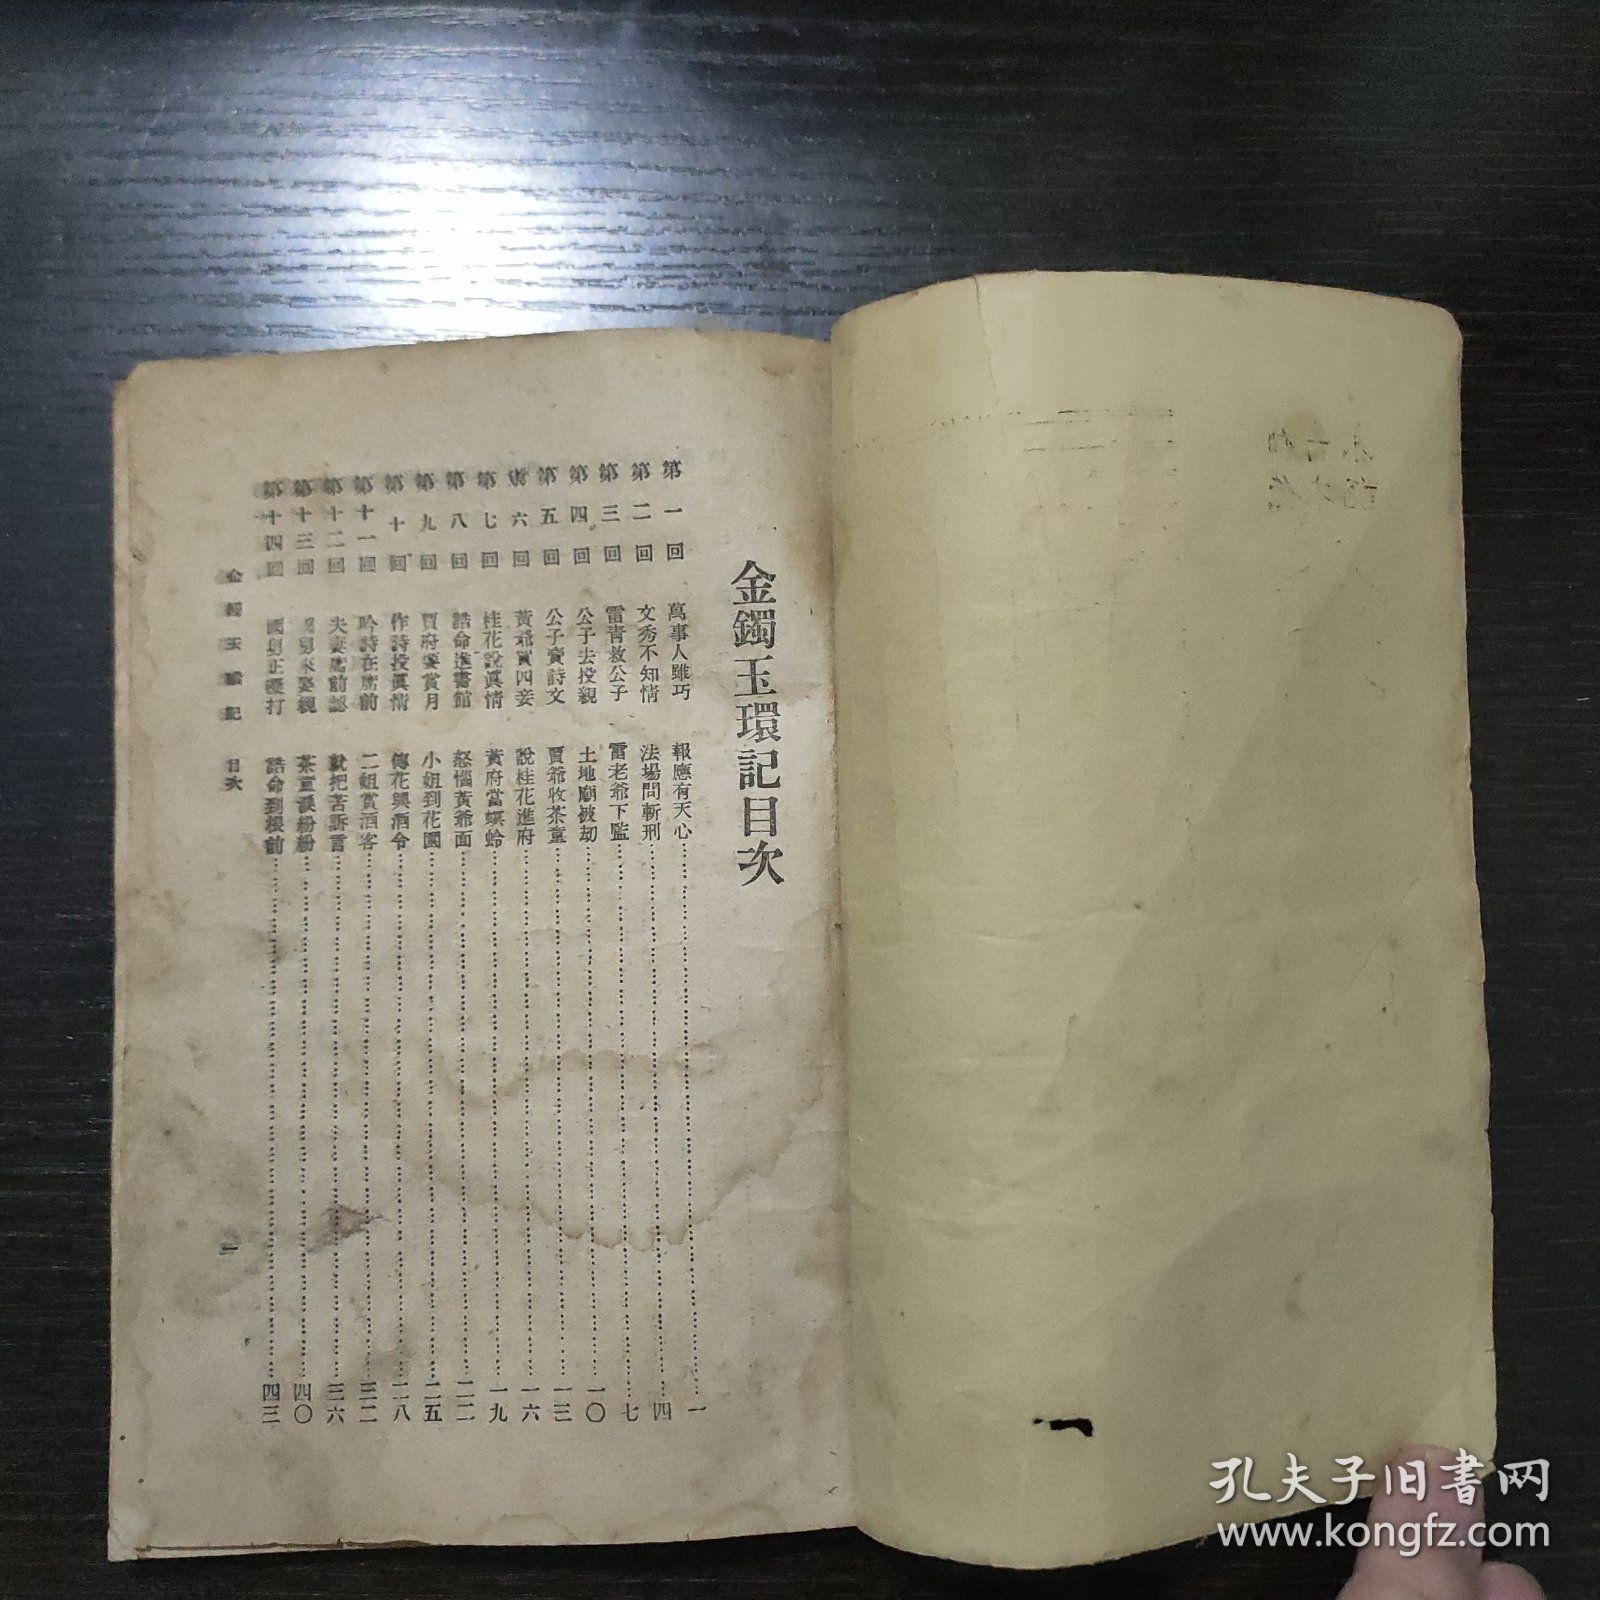 金鐲玉環記目次
第一回 萬事人雖巧 報應有天心 一
第二回 文秀不知情 法場問斬刑 四
第三回 雷青救公子 雷老爺下監 七
第四回 公子去投親 土地廟被刧 一〇
第五回 公子賣詩文 賈爺收茶童 一三
第六回 黃爺買四妾 說桂花進府 一六
第七回 桂花說眞情 黃府當螟蛉 一九
第八回 誥命進書館 怒惱黃爺面 二二
第九回 賈府要賞月 小姐到花園 二五
第十回 作詩投眞情 傳花與酒令 二八
第十一回 吟詩在席前 二姐賞酒客 三二
第十二回 夫妻席前認 就把苦訴言 三六
第十三回 國舅來娶親 茶童淚紛紛 四〇
第十四回 國舅正礙打 誥命到根前 四三
金鐲玉環記 目次
一
孔夫子旧书网
www.kongfz.com